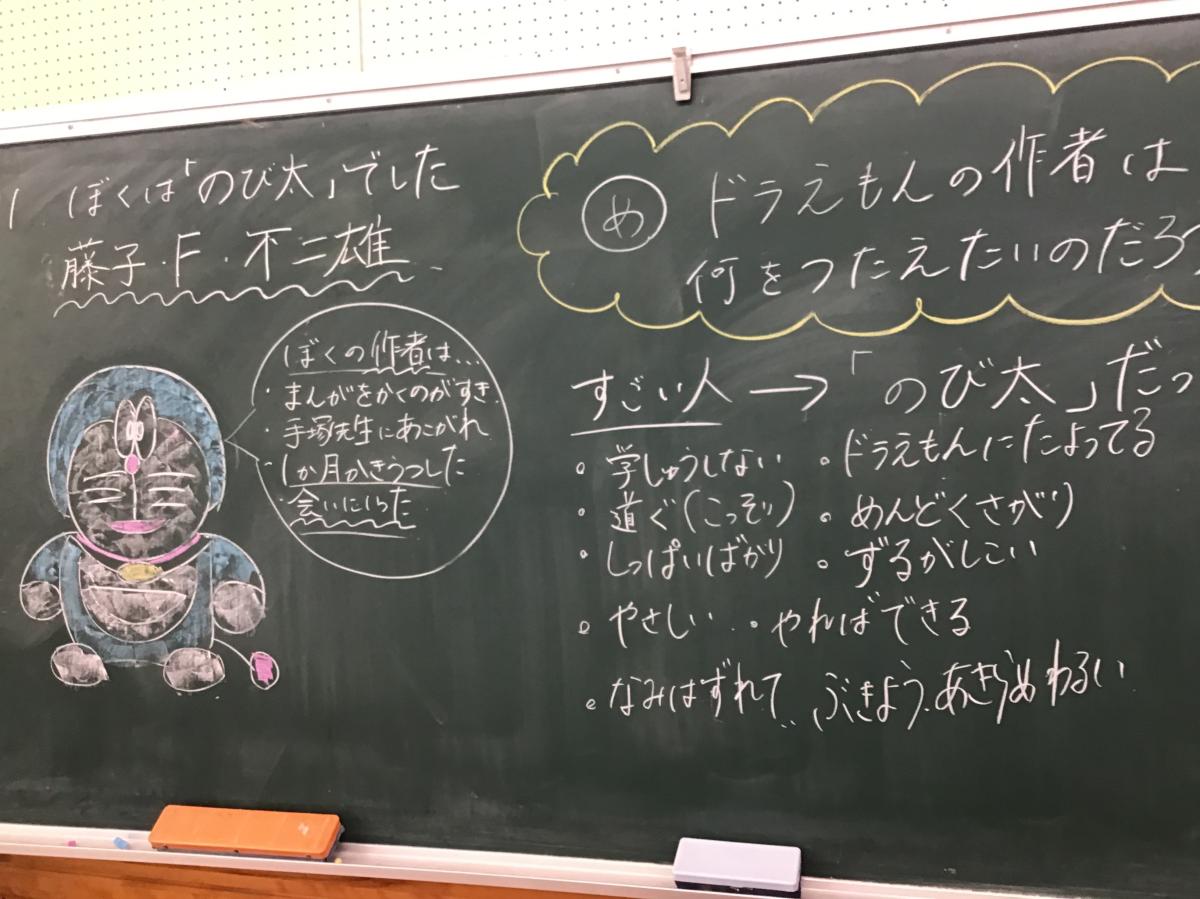 1 ぼくは「のび太」でした
藤子・F・不二雄
ぼくの作者は…
・まんがをかくのがすき
・手塚先生にあこがれ
・1か月かきうつした
・会いにいった
め ドラえもんの作者は
何をつたえたいのだろう
すごい人→「のび太」だっ
。学しゅうしない 。ドラえもんにたよってる
。道ぐ(こっそり) 。めんどくさがり
。しっぱいばかり 。ずるがしこい
。やさしい 。やればできる
。なみはずれて ぶきよう あきらめわるい